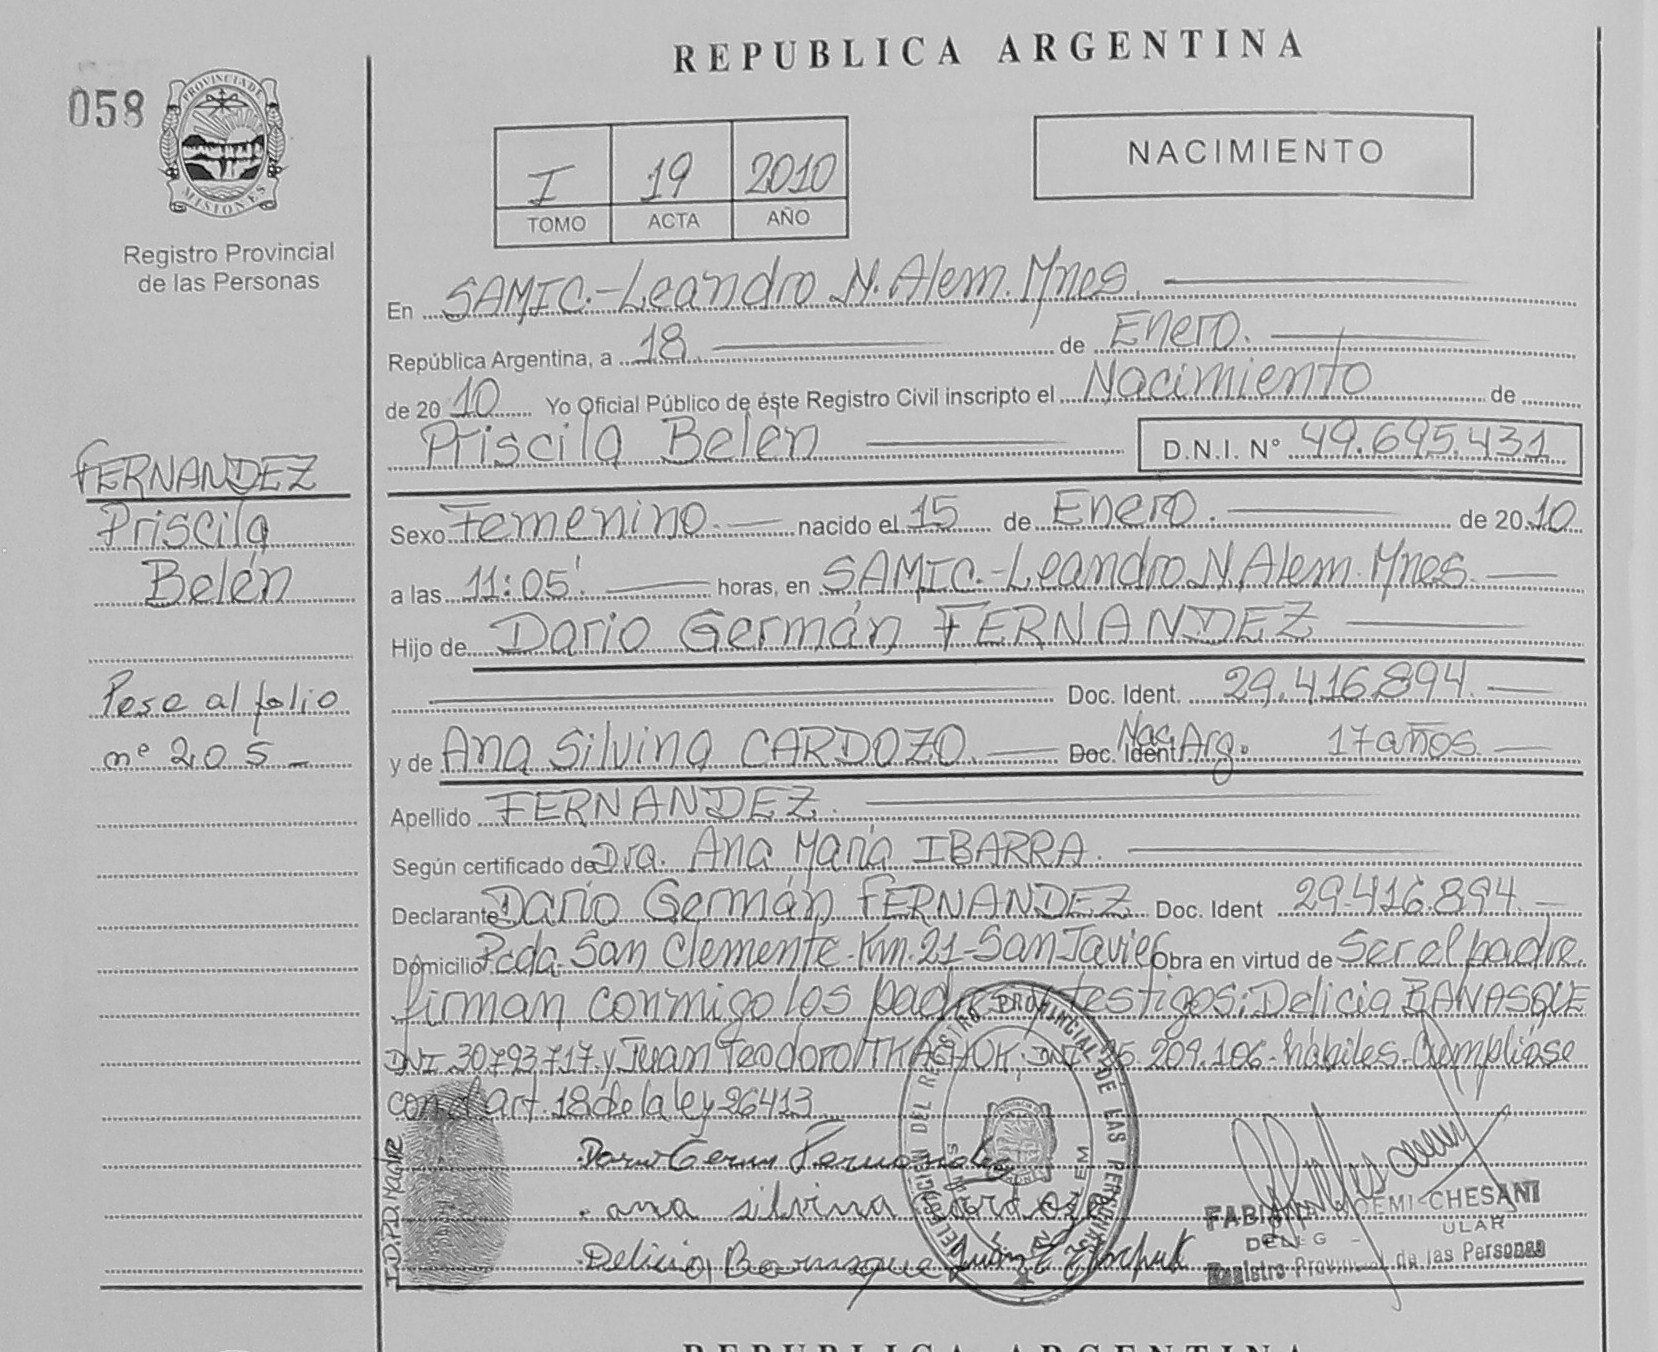 REPUBLICA ARGENTINA
058
PROVINCIA DE
MISIONES
Registro Provincial
de las Personas
I 19 2010
TOMO ACTA AÑO
NACIMIENTO
En SAMIC.-Leandro N. Alem. Mnes.
República Argentina, a 18 de Enero.
de 2010 Yo Oficial Público de éste Registro Civil inscripto el Nacimiento de
Priscila Belén D.N.I. N° 49.695.431
FERNANDEZ
Priscila
Belén
Pase al folio
nº 205
Sexo Femenino. nacido el 15 de Enero. de 2010
a las 11:05' horas, en SAMIC.-Leandro N. Alem. Mnes.
Hijo de Dario Germán FERNANDEZ
Doc. Ident. 29.416.894.
y de Ana Silvina CARDOZO. Doc. Ident Nac. Arg. 17 años.
Apellido FERNANDEZ.
Según certificado de Dra. Ana María IBARRA.
Declarante Dario Germán FERNANDEZ Doc. Ident 29.416.894.
Domicilio Pcda. San Clemente-Km.21-San Javier Obra en virtud de Ser el padre
firman conmigo los padres y testigos: Delicia BANASQUE
DNI 30.793.717. y Juan Teodoro TKACHUK. DNI 25.209.106-hábiles-Cúmpliose
con el art. 18 de la ley 26413
I.D.P.D. Madre
ana silvina Cardozo
REGISTRO PROVINCIAL DE LAS PERSONAS
NOEMI CHESANI
Registro Provincial de las Personas
REPUBLICA ARGENTINA